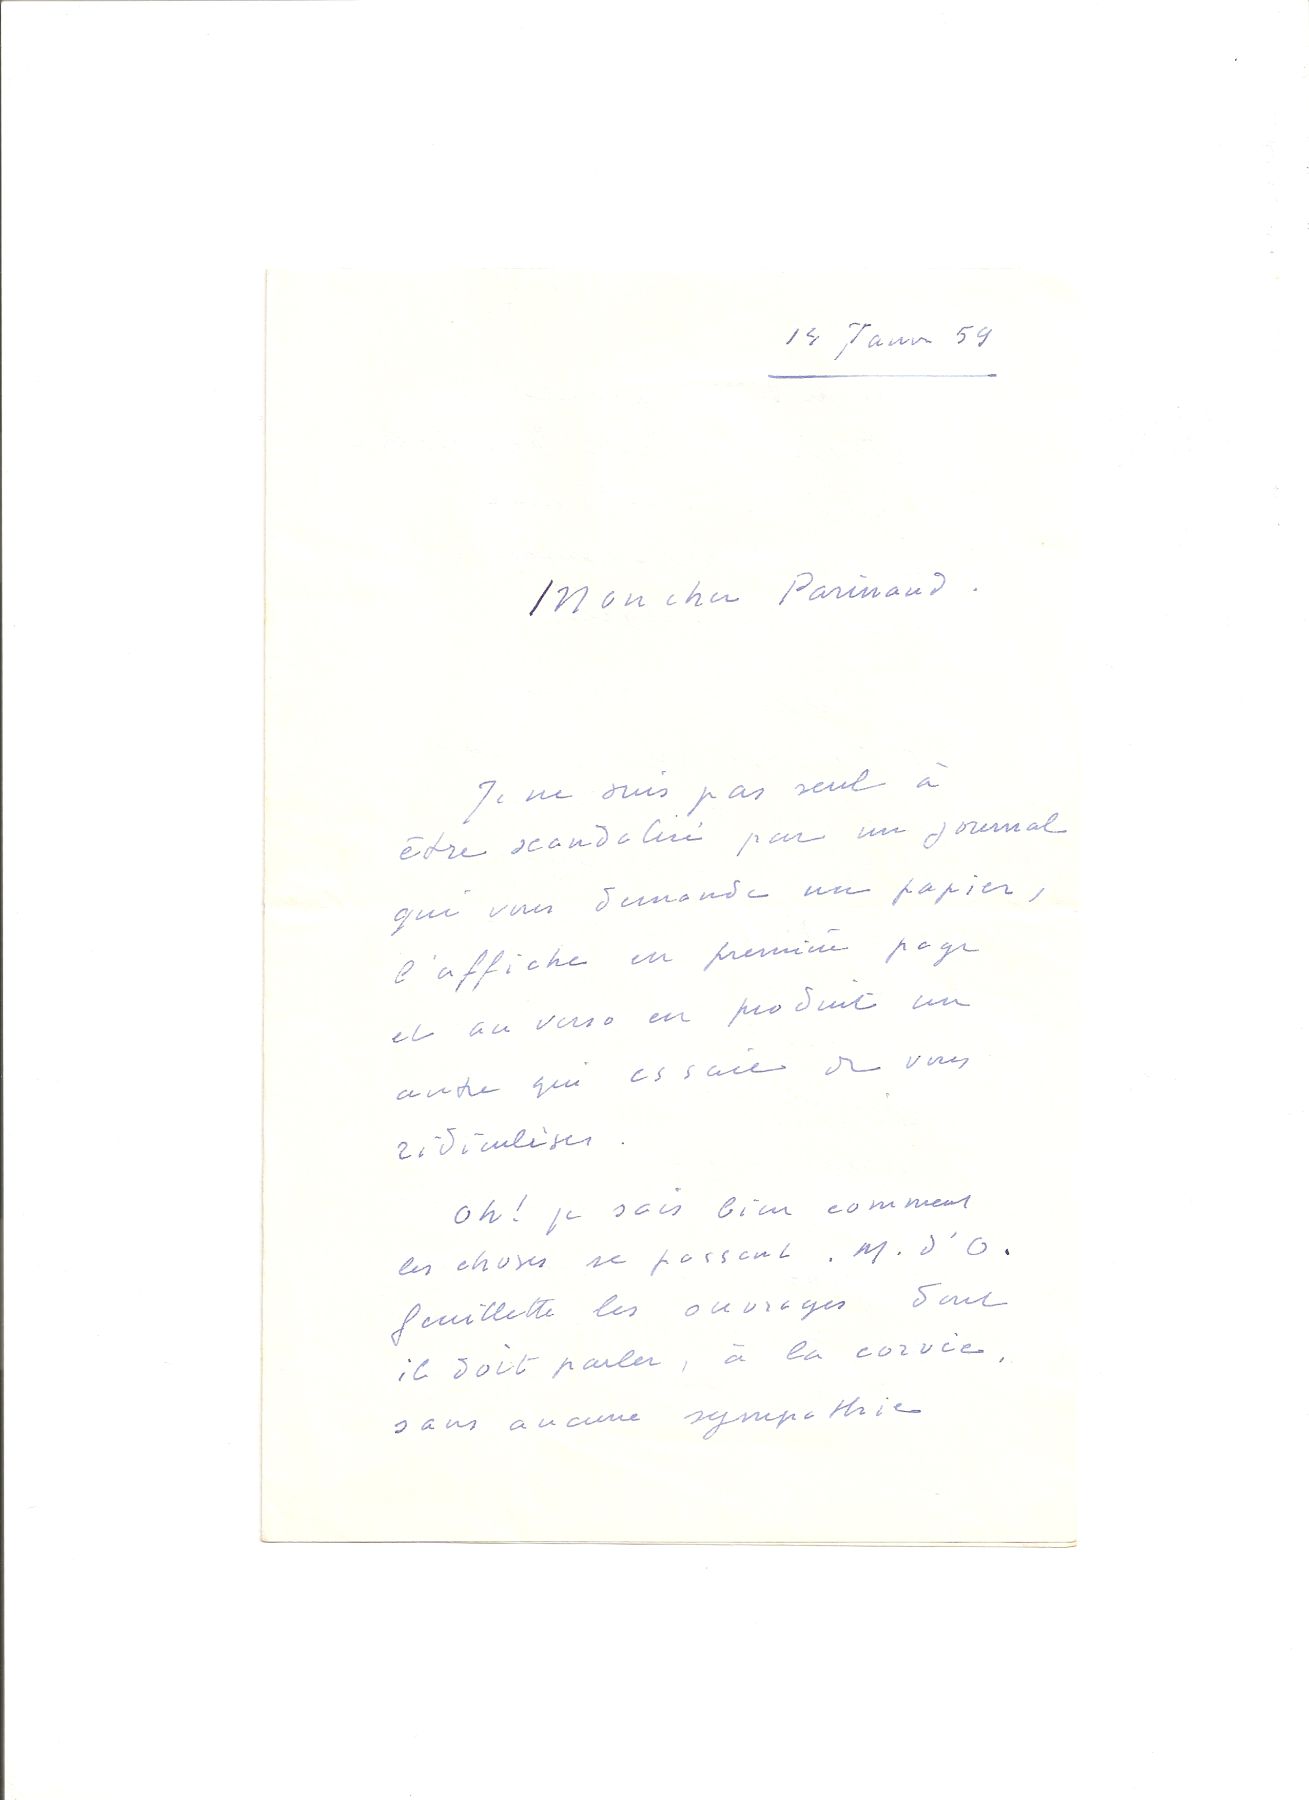 Janv 59
Mon cher Parinaud.
Je ne suis pas seul à
être scandalisé par un journal
qui vous demande un papier,
l'affiche en première page
et au verso en produit un
autre qui essaie de vous
ridiculiser.
Oh! je sais bien comment
les choses se passent. M. d'O.
feuillette les ouvrages dont
il doit parler, à la corvée,
sans aucune sympathie